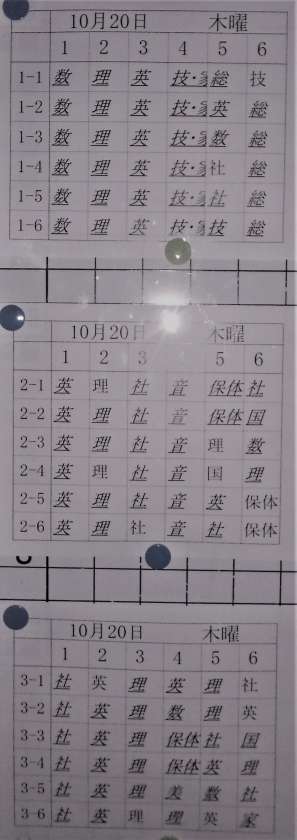 10月20日 木曜
1 2 3 4 5 6
1-1 数 理 英 技・家 総 技
1-2 数 理 英 技・家 英 総
1-3 数 理 英 技・家 数 総
1-4 数 理 英 技・家 社 総
1-5 数 理 英 技・家 社 総
1-6 数 理 英 技・家 技 総
10月20日 木曜
1 2 3 5 6
2-1 英 理 社 音 保体 社
2-2 英 理 社 音 保体 国
2-3 英 理 社 音 理 数
2-4 英 理 社 音 国 理
2-5 英 理 社 音 英 保体
2-6 英 理 社 音 社 保体
10月20日 木曜
1 2 3 4 5 6
3-1 社 英 理 英 理 社
3-2 社 英 理 数 理 英
3-3 社 英 理 保体 社 国
3-4 社 英 理 保体 英 理
3-5 社 英 理 美 数 社
3-6 社 英 理 理 英 家